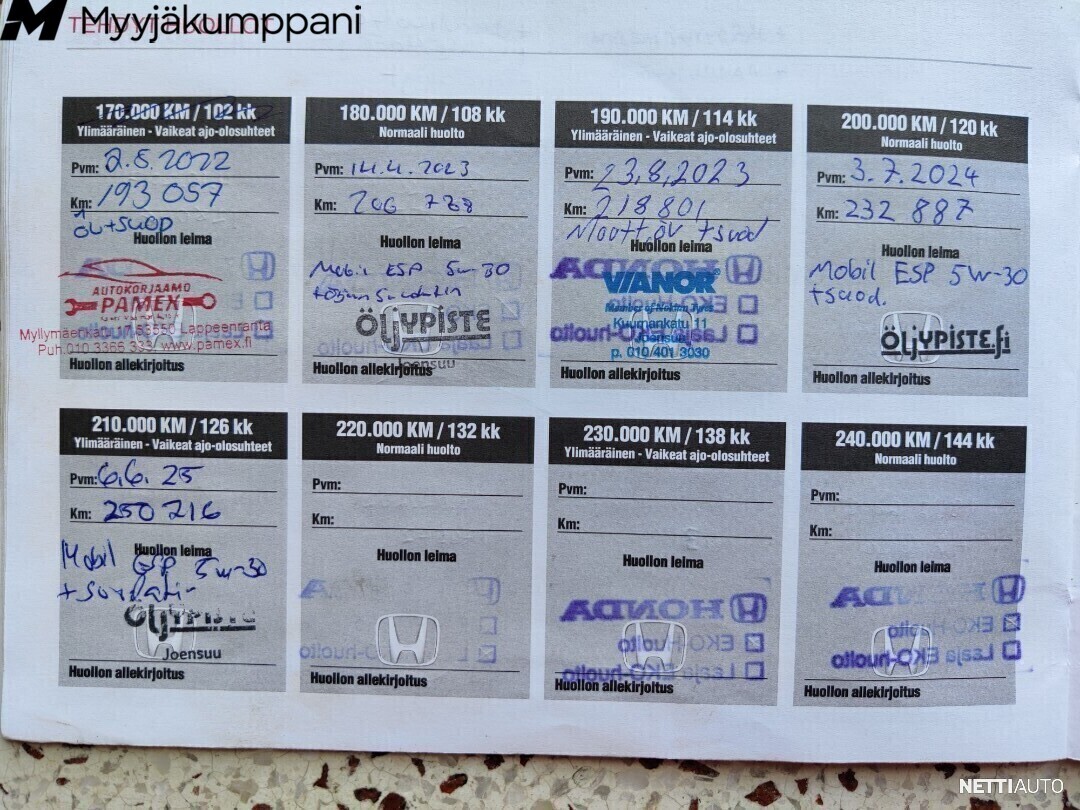 Myyjäkumppani
TEHDYT HUOLLOT
170.000 KM / 102 kk
Ylimääräinen - Vaikeat ajo-olosuhteet
Pvm: 2.8.2022
Km: 193 057
öv+suod
Huollon leima
AUTOKORJAAMO
PAMEX
Myllymäenkatu 1 53550 Lappeenranta
Puh. 010 3366 333/ www.pamex.fi
Huollon allekirjoitus
180.000 KM / 108 kk
Normaali huolto
Pvm: 14.4.2023
Km: 206 738
Huollon leima
Mobil ESP 5w-30
ÖLJYPISTE
Joensuu
Huollon allekirjoitus
190.000 KM / 114 kk
Ylimääräinen - Vaikeat ajo-olosuhteet
Pvm: 23.8.2023
Km: 218801
Moott.öv +suod
Huollon leima
HONDA
VIANOR
Member of Nokian Tyres
Kuurnankatu 11
Joensuu
p. 010/401 3030
EKO-Huolto
Laaja EKO-huolto
Huollon allekirjoitus
200.000 KM / 120 kk
Normaali huolto
Pvm: 3.7.2024
Km: 232 887
Huollon leima
Mobil ESP 5w-30
+suod.
ÖLJYPISTE.fi
Huollon allekirjoitus
210.000 KM / 126 kk
Ylimääräinen - Vaikeat ajo-olosuhteet
Pvm: 6.6.25
Km: 250 216
Huollon leima
Mobil ESP 5w-30
ÖLJYPISTE
Joensuu
Huollon allekirjoitus
220.000 KM / 132 kk
Normaali huolto
Pvm:
Km:
Huollon leima
Huollon allekirjoitus
230.000 KM / 138 kk
Ylimääräinen - Vaikeat ajo-olosuhteet
Pvm:
Km:
Huollon leima
HONDA
EKO-Huolto
Laaja EKO-huolto
Huollon allekirjoitus
240.000 KM / 144 kk
Normaali huolto
Pvm:
Km:
Huollon leima
HONDA
EKO-Huolto
Laaja EKO-huolto
Huollon allekirjoitus
NETTIAUTO